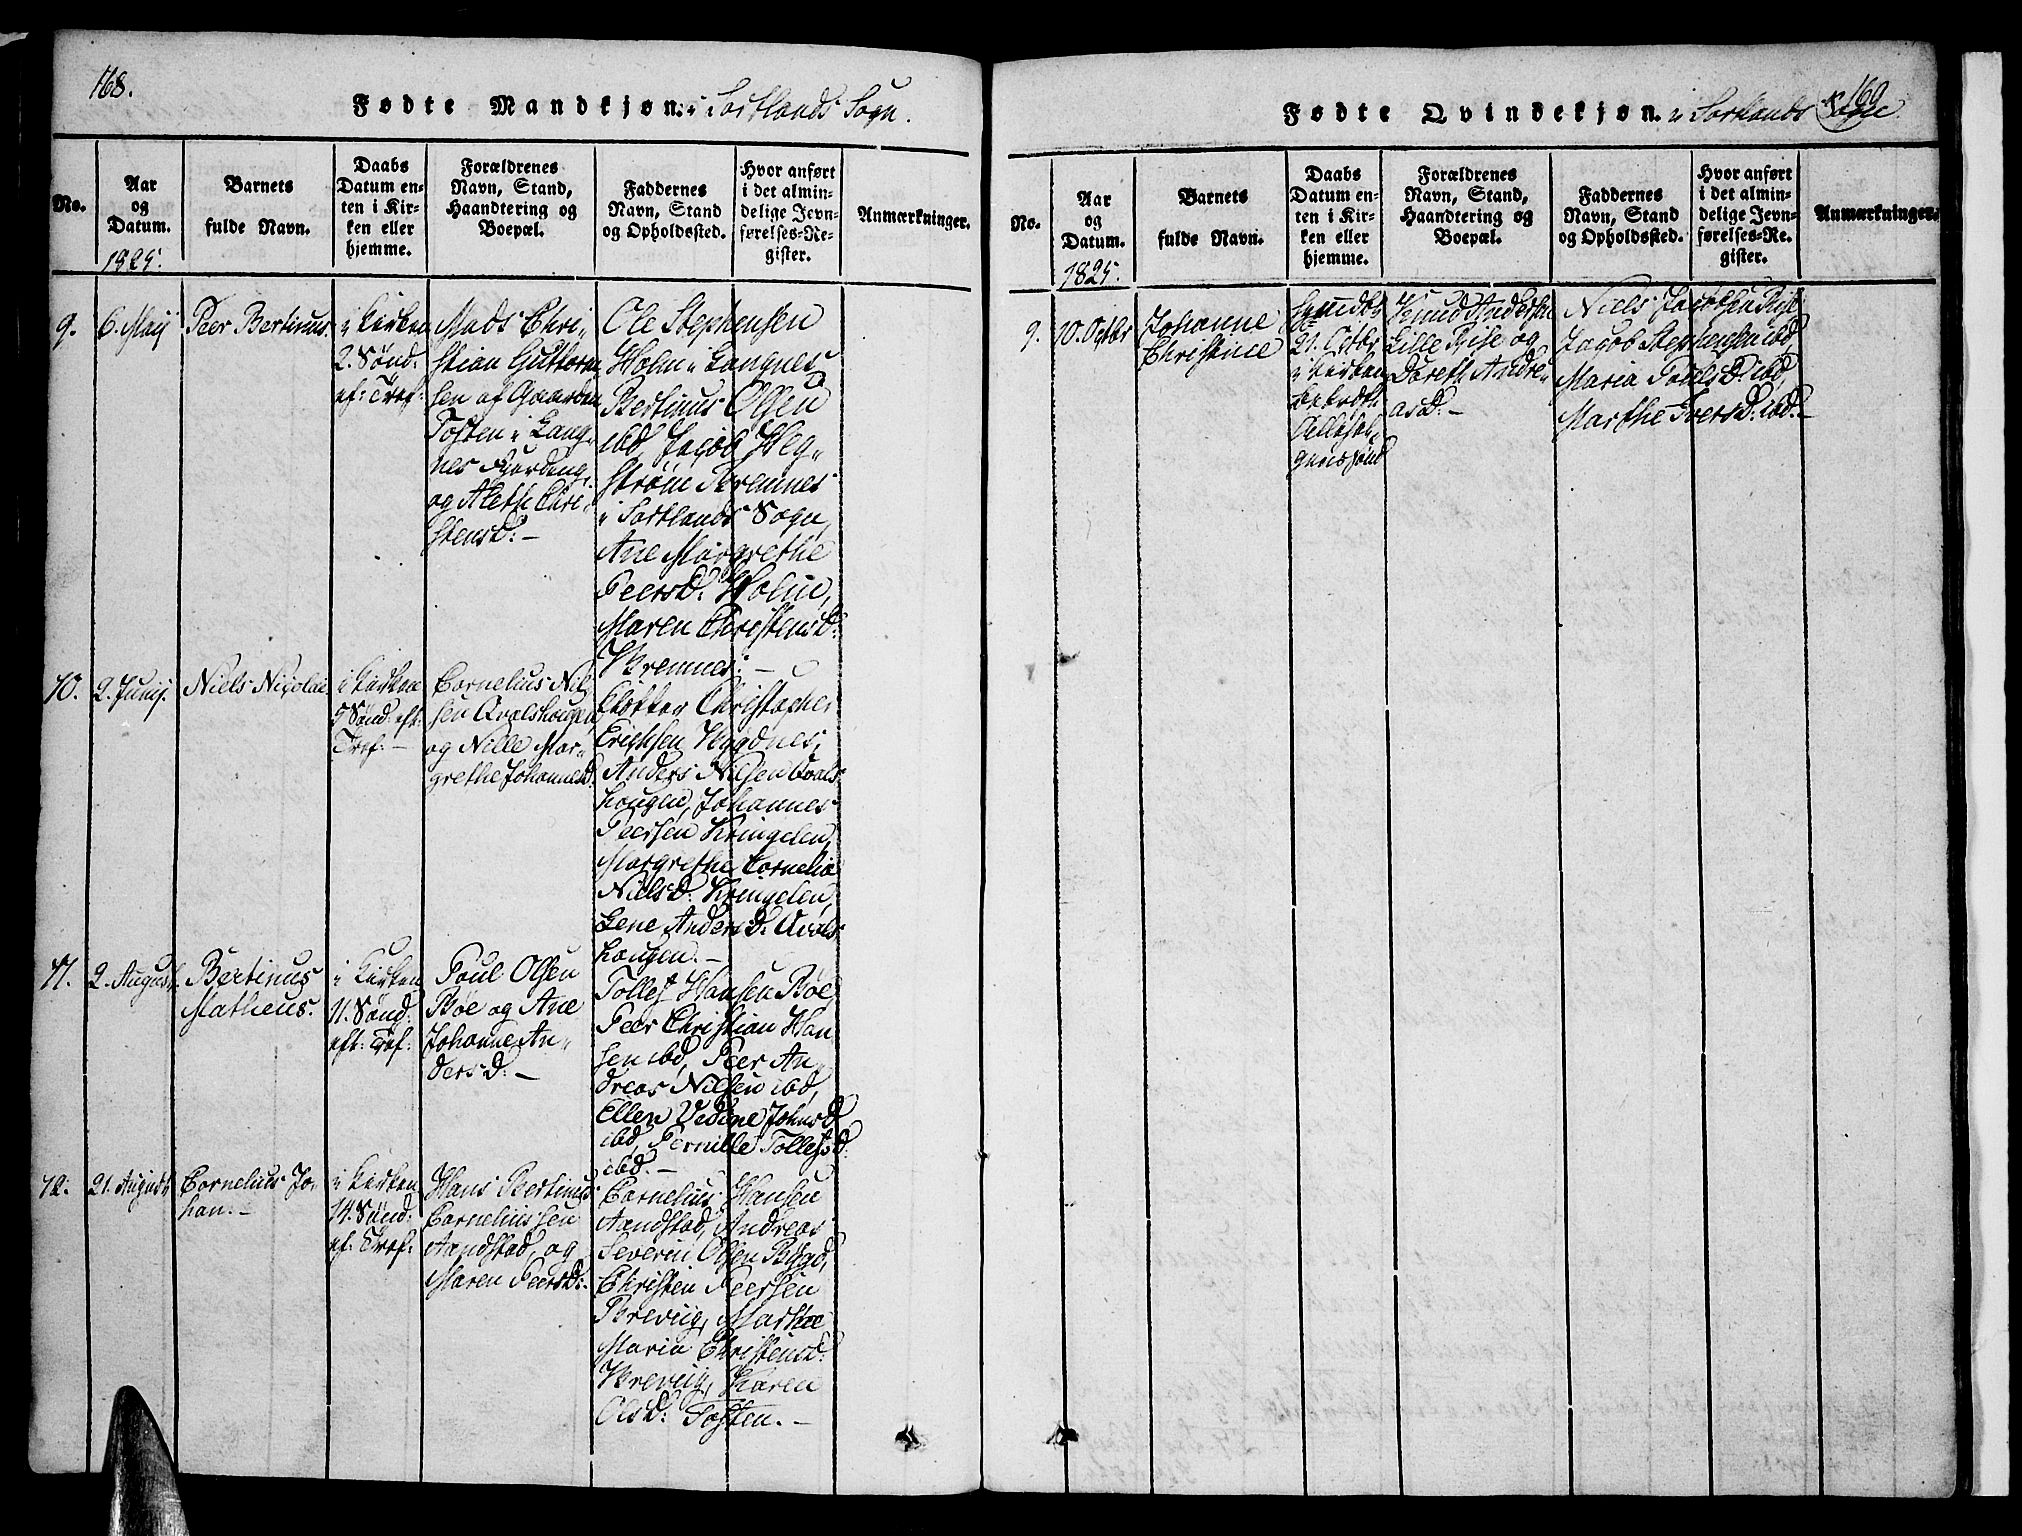 168.
Fødte Mandkjøn. i Sortlands Sogn.
No.
Aar
og
Datum.
1825.
Barnets
fulde Navn.
Daabs
Datum en-
ten i Kir-
ken eller
hjemme.
Forældrenes
Navn, Stand,
Haandtering og
Boepæl.
Faddernes
Navn, Stand
og Opholdssted.
Hvor anført
i det almin-
delige Jevn-
førelses-Re-
gister.
Anmærkninger.
9.
6. Maij
Peer Bertinus.
i Kirken
2. Sønd:
ef: Tref:
Mads Chri-
stian Guttorm-
sen af Gaarden
Tosten i Lang-
nes Fjerding,
og Aleth Chri-
stensd: -
Ole Stephensen
Holm i Langnes
Bertinus Olsen
ibd, Jacob Heg-
strøm Bremnes
i Sortlands Sogn,
Ane Margrethe
Peersd: Holm,
Maren Christensd:
Bremnes: -
10.
2. Junij.
Niels Nicolai
i Kirken
5 Sønd: eft:
Tref: -
Cornelius Nil-
sen Qvalshougen
og Nille Mar-
grethe Johannesd:
Klokker Christopher
Ericksen Vygdnes,
Anders Nilsen Qvals-
hougen, Johannes
Peersen Kringelen,
Margrethe Cornelia
Nielsd: Kringelen,
Lene Andersd: Qvals
hougen. -
11.
2. August.
Bertinus
Matheus.
i Kirken
11. Sønd:
eft: Tref:
Poul Olsen
Bøe og Ane
Johanne An-
dersd: -
Tollef Hansen Bøe,
Peer Christian Han
sen ibd, Peer An-
dreas Nilsen ibd,
Ellen Vedine Johnsd
ibd, Pernille Tollefsd:
ibd. -
12.
21. August
Cornelius Jo-
han. -
i Kirken
14. Sønd:
ef: Tref:
Hans Bertinus
Corneliussen
Aandstad, og
Maren Peersd: -
Cornelius Hansen
Aandstad, Andreas
Severin Olsen Bygd,
Christen Peersen
Breviig, Marthe
Maria Christensd:
Breviig, Karen
Olsd: Tosten. -
169
Fødte Qvindekjøn. i Sortlands Sogn.
No.
Aar
og
Datum.
1825.
Barnets
fulde Navn.
Daabs
Datum en-
ten i Kir-
ken eller
hjemme.
Forældrenes
Navn, Stand,
Haandtering og
Boepæl.
Faddernes
Navn, Stand
og Opholdssted.
Hvor anført
i det almin-
delige Jevn-
førelses-Re-
gister.
Anmærkninger.
9.
10. Octbr
Johanne
Christine
21. Octbr
i Kirken
Allehel-
gens sønd
Knud Andersen
Lille Rise og
Doreth Andre-
asd: -
Niels Jacobsen Rise
Jacob Stephensen ibd,
Maria Poulsd: ibd,
Marthe Iversd: ibd. -